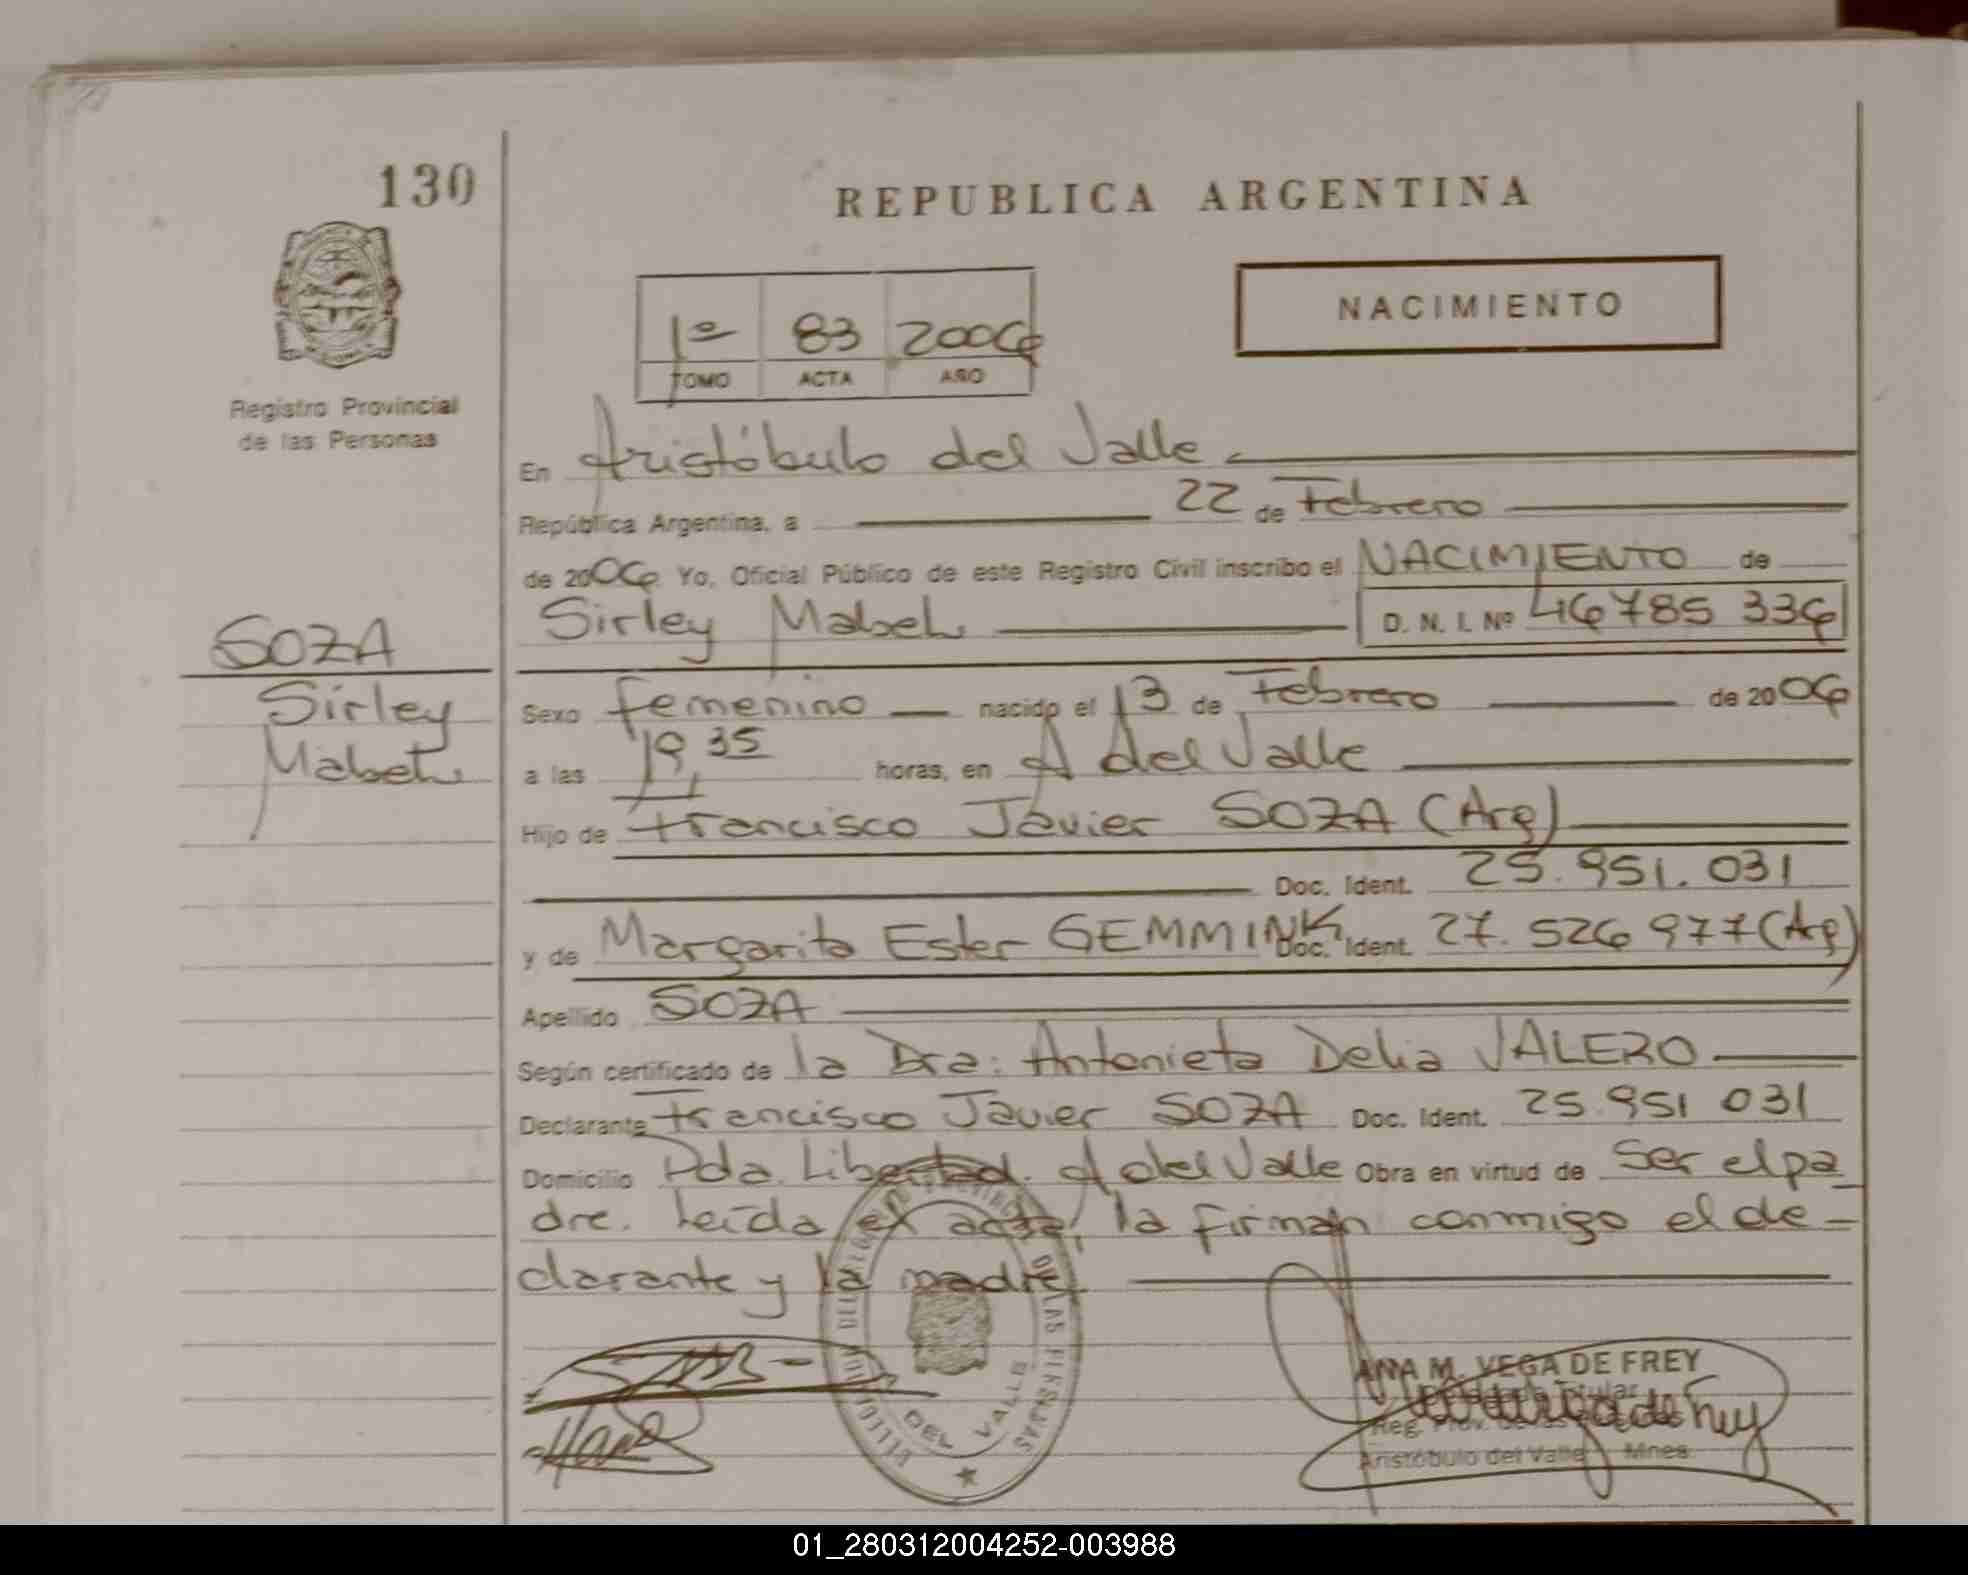 130
REPUBLICA ARGENTINA
NACIMIENTO
1º 83 2006
TOMO ACTA AÑO
Registro Provincial
de las Personas
En Aristóbulo del Valle
República Argentina, a 22 de Febrero
de 2006 Yo, Oficial Público de este Registro Civil inscribo el NACIMIENTO de
Sirley Mabel D. N. I. Nº 46785 336
SOZA
Sirley
Mabel
Sexo femenino nacido el 13 de Febrero de 2006
a las 19,35 horas, en A del Valle
Hijo de Francisco Javier SOZA (Arg)
Doc. Ident. 25.951.031
y de Margarita Ester GEMMINK Doc. Ident. 27.526 977 (Arg)
Apellido SOZA
Según certificado de la Dra: Antonieta Delia VALERO
Declarante Francisco Javier SOZA Doc. Ident. 25.951 031
Domicilio Pda. Libertad. A del Valle Obra en virtud de Ser el pa
dre. Leída el acta, la firman conmigo el de-
clarante y la madre
DE LAS PERSONAS
DEL VALLE
ANA M. VEGA DE FREY
Titular
Reg. Prov. de las
Aristóbulo del Valle Mnes.
01_280312004252-003988